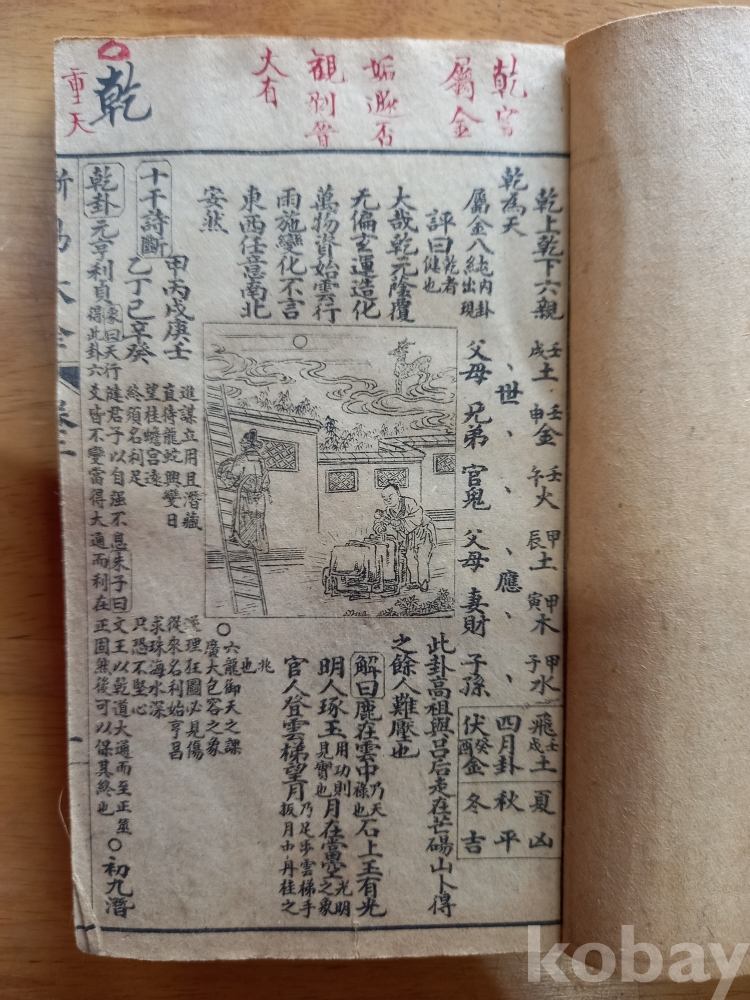 乾宮
屬金
姤遯否
觀剝晉
大有
乾
重天
乾上乾下六親
乾為天
屬金八純內卦出現
世
應
壬戌土
壬申金
壬午火
甲辰土
甲寅木
甲子水
父母
兄弟
官鬼
父母
妻財
子孫
飛壬戌土
四月卦
伏癸酉金
夏凶
秋平
冬吉
評曰乾者健也
大哉乾元陰覆
无偏玄運造化
萬物資始雲行
雨施變化不言
東西任意南北
安然
此卦高祖與呂后走在芒碭山卜得
之餘人難壓也
解曰鹿在雲中乃天祿也石上玉有光
明人琢玉用功則見寶也月在當空光明之象
官人登雲梯望月乃足步雲梯手扳月中丹桂之
兆也
六龍御天之課
廣大包容之象
十干詩斷
甲丙戊庚壬
乙丁己辛癸
進謀立用且潛藏
直待龍蛇興變日
望桂蟾宮遠
終須名利足
違理狂圖必見傷
從來名利始亨昌
求珠海水深
只恐不堅心
乾卦元亨利貞
彖曰天行健君子以自强不息朱子曰文王以乾道大通而至正筮
得此卦六爻皆不變當得大通而利在正固然後可以保其終也
初九潛
大全
kobay